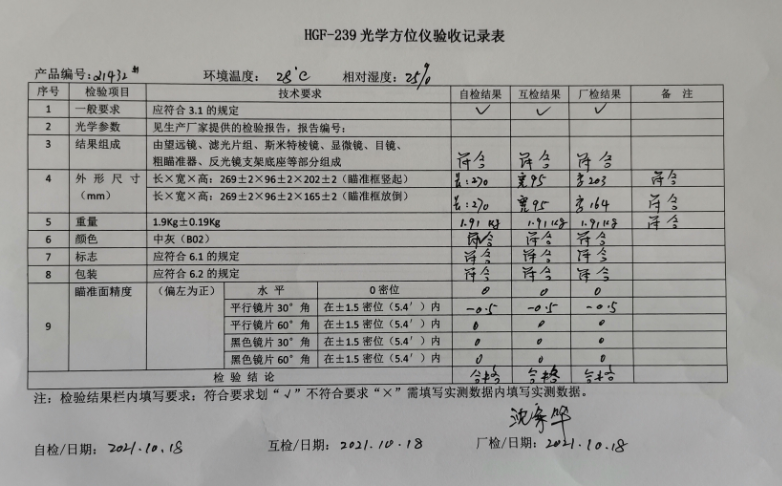 HGF-239 光学方位仪验收记录表
产品编号: 21432# 环境温度: 28℃ 相对湿度: 25%
序号 检验项目 技术要求 自检结果 互检结果 厂检结果 备 注
1 一般要求 应符合 3.1 的规定 ✓ ✓ ✓
2 光学参数 见生产厂家提供的检验报告,报告编号:
3 结果组成 由望远镜、滤光片组、斯米特棱镜、显微镜、目镜、
粗瞄准器、反光镜支架底座等部分组成 符合 符合 符合
4 外形尺寸(mm) 长×宽×高: 269±2×96±2×202±2(瞄准框竖起) 长:270 宽95 高203 符合
长×宽×高: 269±2×96±2×165±2(瞄准框放倒) 长:270 宽95 高164 符合
5 重量 1.9Kg±0.19Kg 1.91 kg 1.91 kg 1.91 kg 符合
6 颜色 中灰(B02) 符合 符合 符合
7 标志 应符合 6.1 的规定 符合 符合 符合
8 包装 应符合 6.2 的规定 符合 符合 符合
9 瞄准面精度 (偏左为正) 水 平 0 密位 0 0 0
平行镜片 30° 角 在±1.5 密位(5.4′)内 -0.5 -0.5 -0.5
平行镜片 60° 角 在±1.5 密位(5.4′)内 0 0 0
黑色镜片 30° 角 在±1.5 密位(5.4′)内 0 0 0
黑色镜片 60° 角 在±1.5 密位(5.4′)内 0 0 0
检 验 结 论 合格 合格 合格
注: 检验结果栏内填写要求: 符合要求划“√”不符合要求“×”需填写实测数据内填写实测数据。
自检/日期: 2021.10.18 互检/日期: 2021.10.18 厂检/日期: 2021.10.18